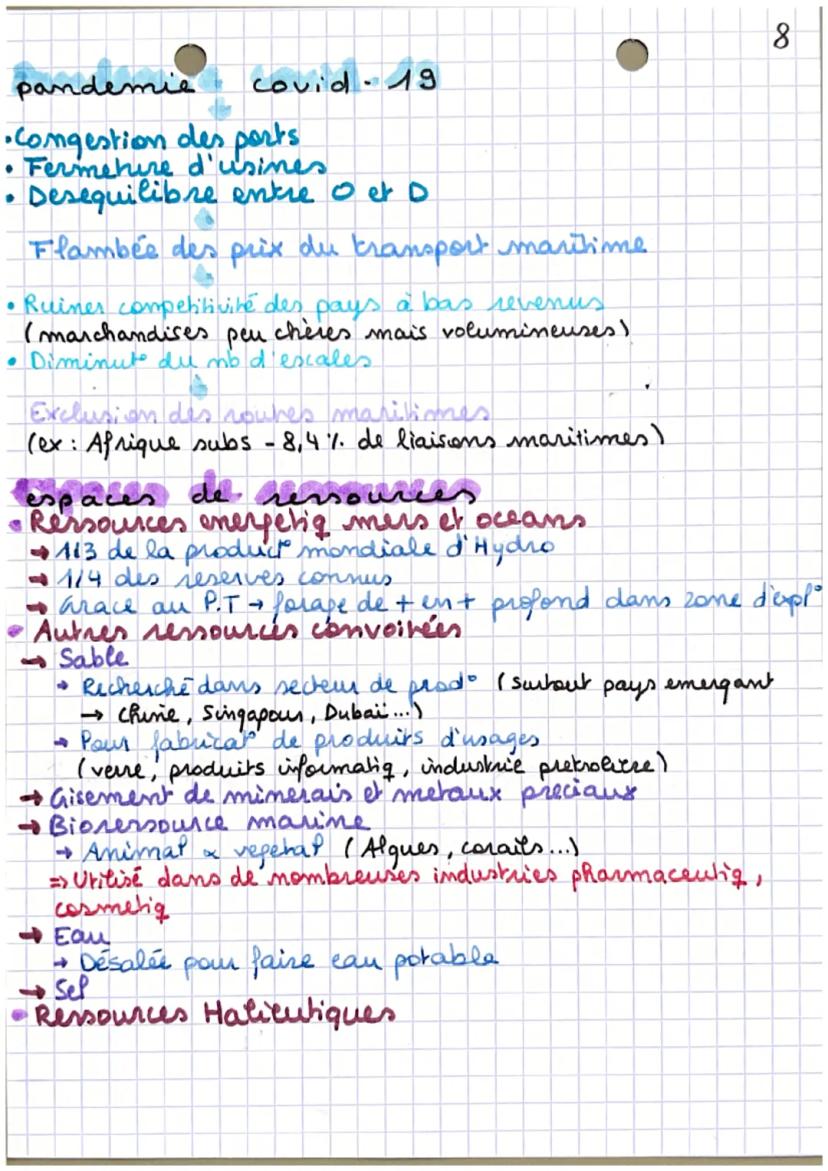 8
pandemie covid-19
• Congestion des ports
• Fermeture d'usines
• Desequilibre entre O et D
Flambée des prix du transport maritime
• Ruines competitivité des pays à bas revenus
(marchandises peu chères mais volumineuses)
• Diminut° du nb d'escales
Exclusion des routes maritimes
(ex : Afrique subs - 8,4 % de liaisons maritimes)
espaces de ressources
• Ressources energetiq mers et oceans
→ 1/3 de la product° mondiale d'Hydro
→ 1/4 des reserves connus
→ Grace au P.T → forage de + en + profond dans zone d'expl°
• Autres ressources convoitées
→ Sable
→ Recherché dans secteur de prod° (surtout pays emergant
→ Chine, Singapour, Dubaï...)
→ Pour fabricat° de produits d'usages
(verre, produits informatiq, industrie pretroliere)
→ Gisement de minerais et metaux preciaux
→ Bioressource marine
→ Animal & vegetal (Algues, corails...)
⇒ Utilisé dans de nombreuses industries pharmaceutiq,
cosmetiq
→ Eau
→ Désalée pour faire eau potable
→ Sel
• Ressources Halieutiques